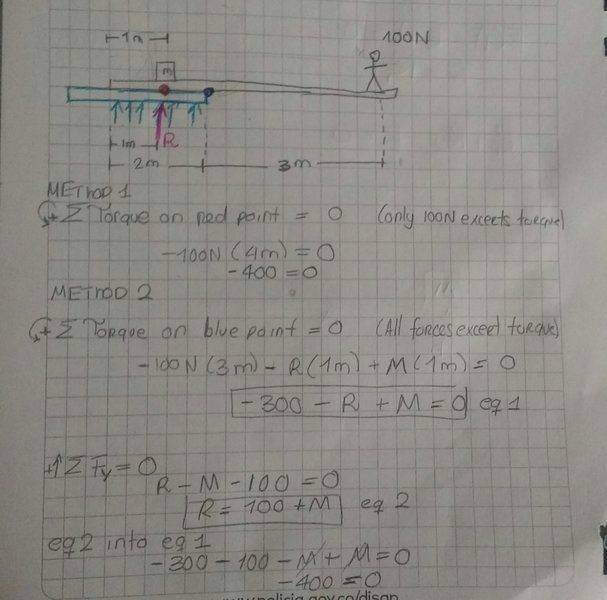 1m
100N
m
1m
R
2m
3m
METHOD 1
+ Σ Torque on red point = 0 (only 100N exceets torque)
-100N (4m) = 0
-400 = 0
METHOD 2
+ Σ Torque on blue point = 0 (All forces exceet torque)
-100N (3m) - R(1m) + M(1m) = 0
-300 - R + M = 0 eq 1
+↑ Σ Fy = 0
R - M - 100 = 0
R = 100 + M eq 2
eq 2 into eq 1
-300 - 100 - M + M = 0
-400 = 0
www.policia.gov.co/disan